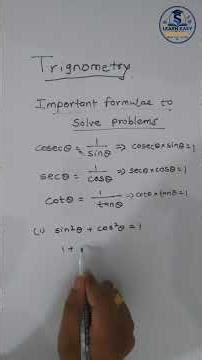 LEARN EASY
Trignometry
Important formulae to
Solve problems
cosecθ = 1/sinθ ⇒ cosecθ×sinθ=1
secθ = 1/cosθ ⇒ secθ×cosθ=1
cotθ = 1/tanθ ⇒ cotθ×tanθ=1
(1) sin²θ + cos²θ = 1
1 +